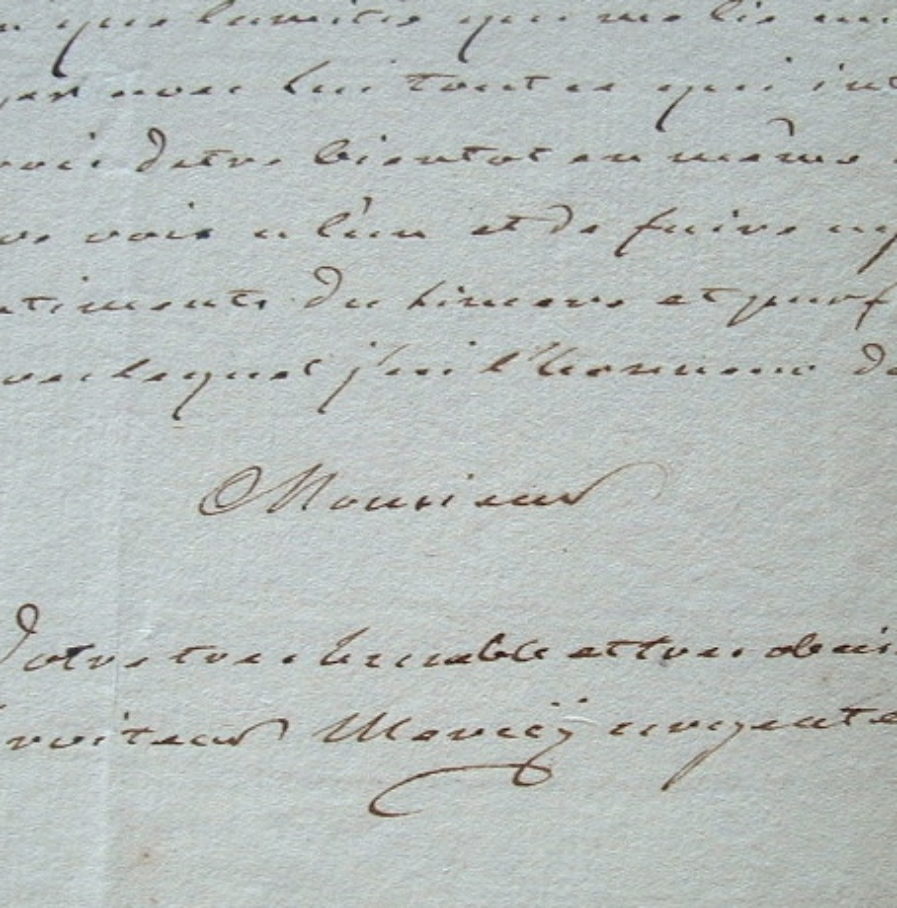 que lamitie qui me lie
avec lui tout ce qui int
detre bientot en même
voir a l'un et de faire
timents du sincere et parf
lequel j'ai l'honneur de
Monsieur
Votre tres humble et tres obeis
rviteur Mercÿ argente